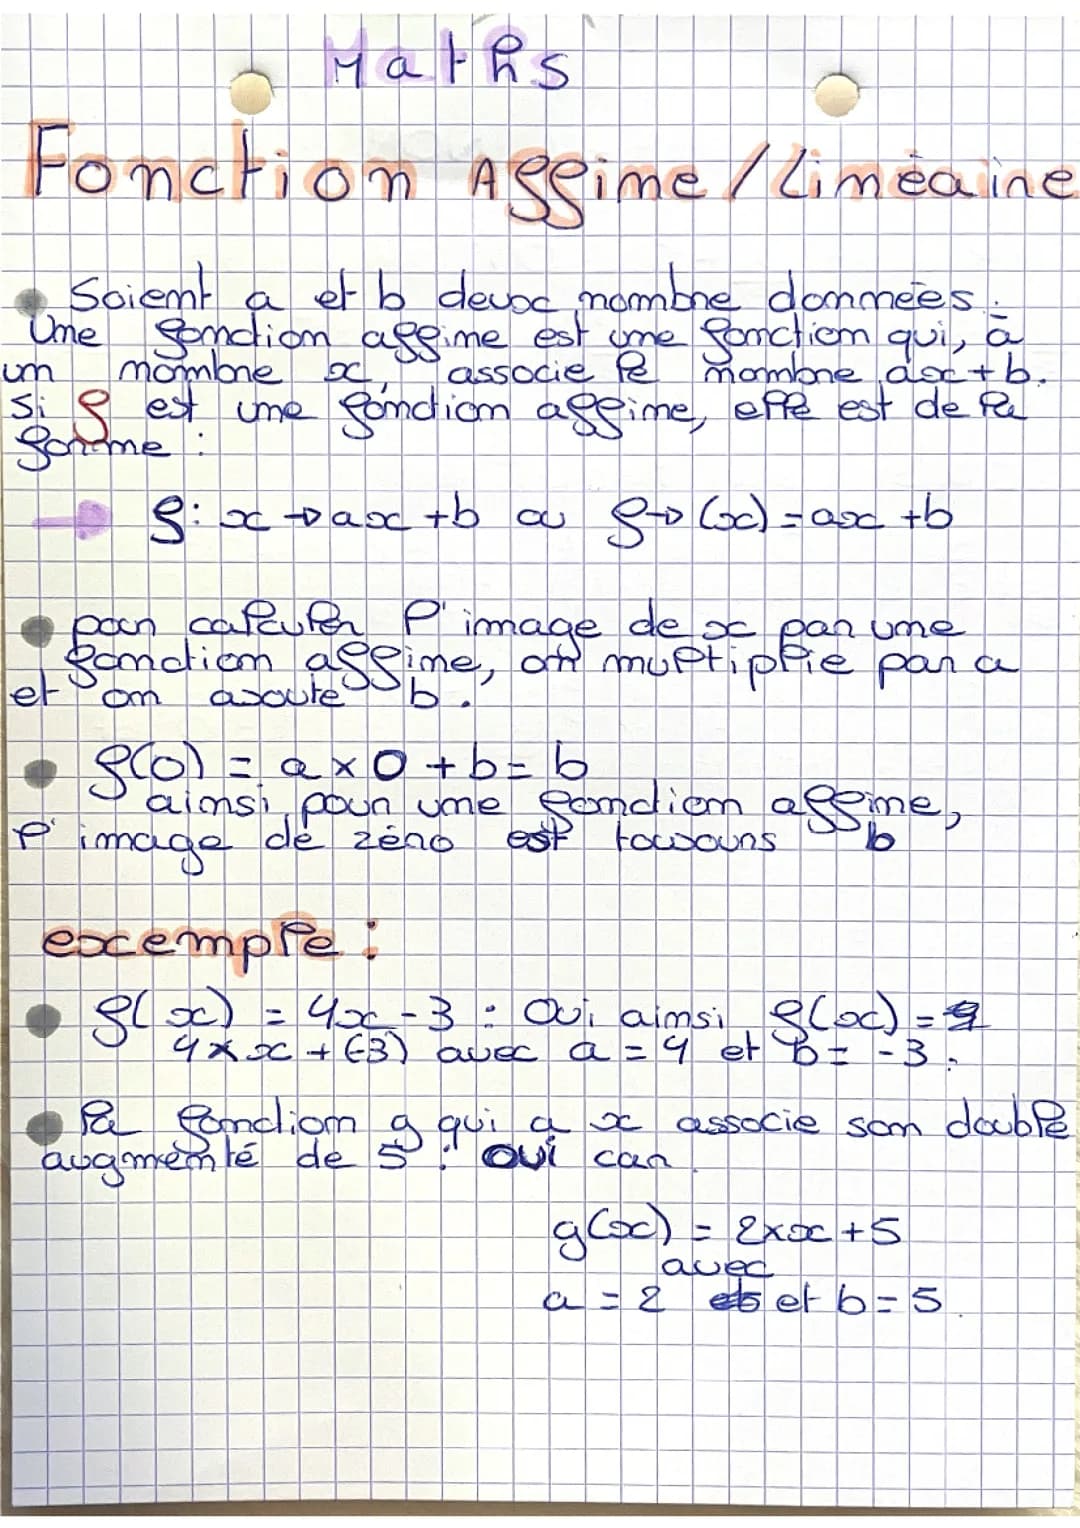 Maths
Fonction Affine / Linéaire
Soient a et b deux nombre données.
Une fonction affine est une fonction qui, à
un nombre x, associe le nombre ax+b.
Si f est une fonction affine, elle est de la
forme :
f: x → ax +b ou f→(x) = ax +b
pour calculer l'image de x par une
fonction affine, on multiplie par a
et on ajoute b.
f(0) = a × 0 + b = b
ainsi pour une fonction affine,
l'image de zéro est toujours b
exemple :
f(x) = 4x - 3 : Oui ainsi f(x) =
4 × x + (-3) avec a = 4 et b = -3.
la fonction g qui a x associe son double
augmenté de 5 : oui car
g(x) = 2×x + 5
avec
a = 2 et b = 5.